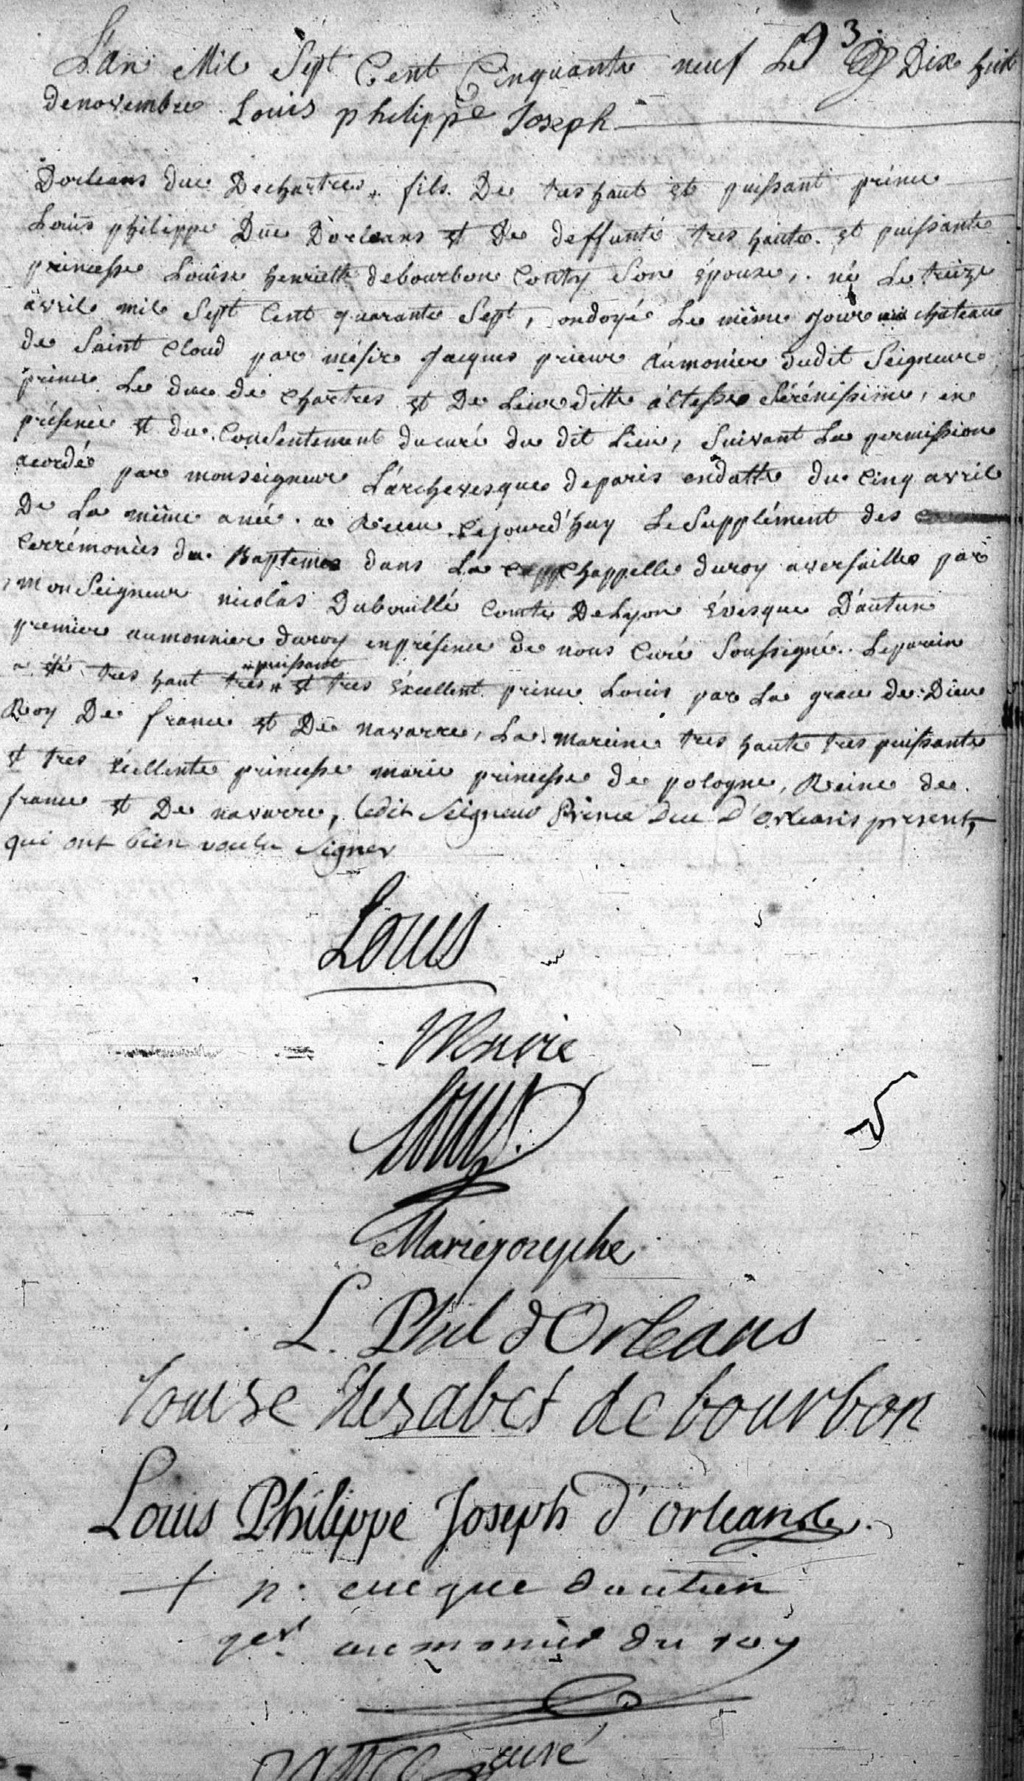 L'an Mil Sept Cent Cinquante neuf Le Dix huit
denovembre Louis philippe Joseph
Dorleans duc Dechartres, fils De tres haut et puissant prince
Louis philippe Duc Dorleans et De deffunte tres haute et puissante
princesse Louise henriette debourbon Conty Son épouse, né Le treize
avril mil Sept Cent quarante Sept, ondoyé Le même jour au chateau
de Saint Cloud par messire Jacques prieur Aumonier dudit Seigneur
prince Le duc de Chartres et De Leurditte altesse Sérénissime, en
présence et du Consentement ducuré du dit Lieu, Suivant La permission
acordé par monseigneur L'archevesque deparis endatte du Cinq avril
De La même anée a Receu Cejourd'huy Le Supplément des
Cerrémonies du Baptemes dans La Chappelle duroy aversailles par
Mon Seigneur nicolas Dubouillé Comte DeLyon Evesque D'autun
premier aumonnier duroy enprésence de nous Curé Soussigné. Leparein
a été tres haut tres puissant et tres Excellent prince Louis par La grace de Dieu
Roy De france et De navarre, La mareine tres haute tres puissante
et tres éxcellente princesse marie princesse de pologne, Reine de
france et De navarre, ledit Seigneur Prince Duc d'Orleans present,
qui ont bien voulu Signer
Louis
Marie
Louis
Mariejosephe
L. Phil d'Orleans
Louise Elisabet de bourbon
Louis Philippe Joseph d'orleans
+ n. eveque dautun
per aumonier du roy
curé